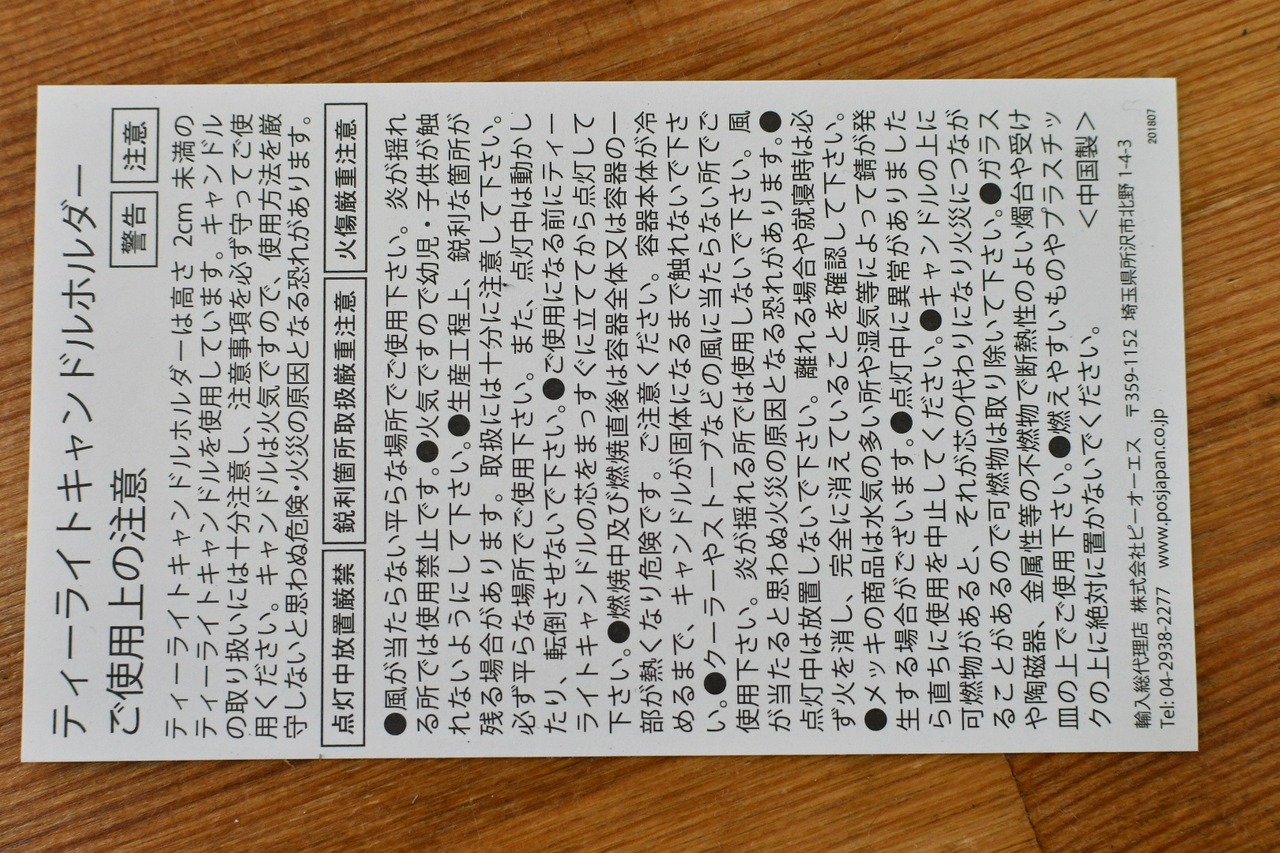 ティーライトキャンドルホルダー
ご使用上の注意
警告 注意
ティーライトキャンドルホルダーは高さ 2cm 未満の
ティーライトキャンドルを使用しています。キャンドル
の取り扱いには十分注意し、注意事項を必ず守ってご使
用ください。キャンドルは火気ですので、使用方法を厳
守しないと思わぬ危険・火災の原因となる恐れがあります。
点灯中放置厳禁 鋭利箇所取扱厳重注意 火傷厳重注意
●風が当たらない平らな場所でご使用下さい。炎が揺れ
る所では使用禁止です。●火気ですので幼児・子供が触
れないようにして下さい。●生産工程上、鋭利な箇所が
残る場合があります。取扱には十分に注意して下さい。
必ず平らな場所でご使用下さい。また、点灯中は動かし
たり、転倒させないで下さい。●ご使用になる前にティー
ライトキャンドルの芯をまっすぐに立ててから点灯して
下さい。●燃焼中及び燃焼直後は容器全体又は容器の一
部が熱くなり危険です。ご注意ください。容器本体が冷
めるまで、キャンドルが固体になるまで触れないで下さ
い。●クーラーやストーブなどの風に当たらない所でご
使用下さい。炎が揺れる所では使用しないで下さい。風
が当たると思わぬ火災の原因となる恐れがあります。●
点灯中は放置しないで下さい。離れる場合や就寝時は必
ず火を消し、完全に消えていることを確認して下さい。
●メッキの商品は水気の多い所や湿気等によって錆が発
生する場合がございます。●点灯中に異常がありました
ら直ちに使用を中止してください。●キャンドルの上に
可燃物があると、それが芯の代わりになり火災につなが
ることがあるので可燃物は取り除いて下さい。●ガラス
や陶磁器、金属性等の不燃物で断熱性のよい燭台や受け
皿の上でご使用下さい。●燃えやすいものやプラスチッ
クの上に絶対に置かないでください。 <中国製>
輸入総代理店 株式会社ピーオーエス 〒359-1152 埼玉県所沢市北野 1-4-3
Tel: 04-2938-2277 www.posjapan.co.jp 201807